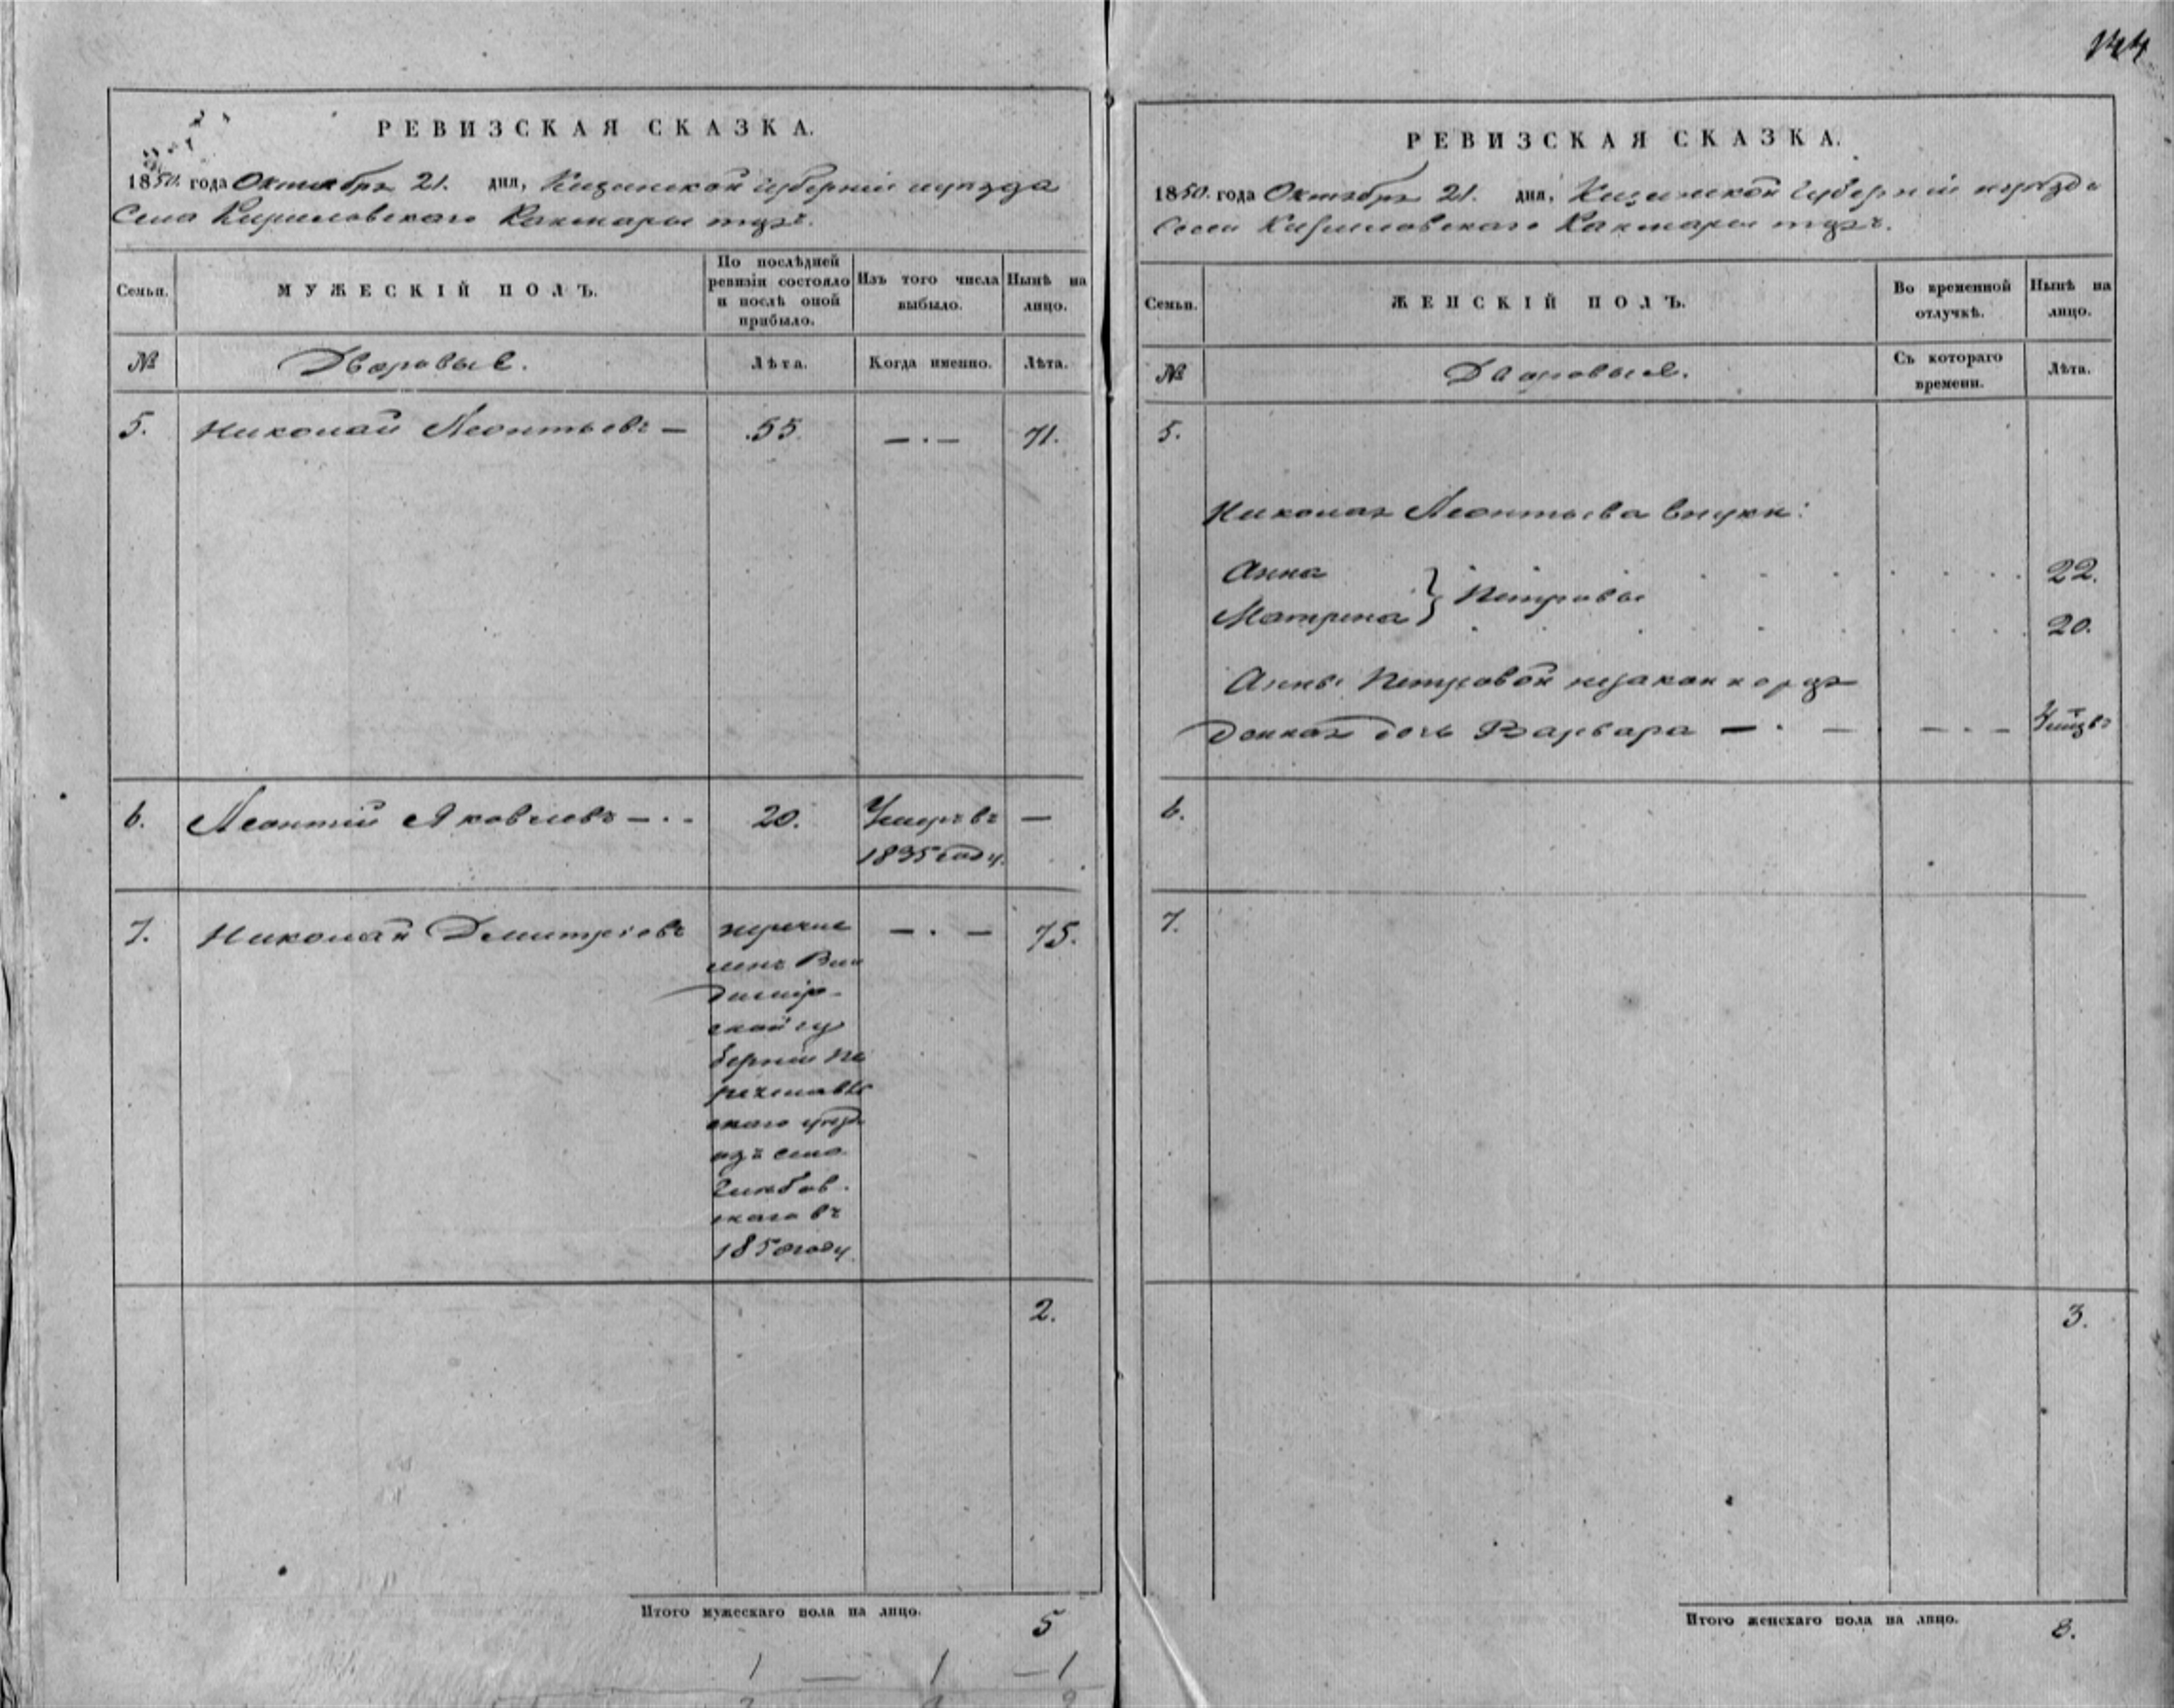 144
РЕВИЗСКАЯ СКАЗКА.
1850. года Октября 21. дня, Казанской Губерніи уѣзда
Села Кириловскаго Какшары тожъ.
Семьи.
МУЖЕСКІЙ ПОЛЪ.
По послѣдней ревизіи состояло и послѣ оной прибыло.
Изъ того числа выбыло.
Нынѣ на лицо.
№
Дворовые.
Лѣта.
Когда именно.
Лѣта.
5. Николай Леонтьевъ — 55. — · — 71.
6. Леонтій Яковлевъ — · - 20. Умеръ въ —
1835 году.
7. Николай Дмитріевъ перечис — · — 75.
ленъ Вла
димір-
ской гу
берніи Пе
реславль
скаго уѣз
изъ села
скаго въ
1850 году
2.
Итого мужескаго пола на лицо. 5
1 — 1 — 1
РЕВИЗСКАЯ СКАЗКА.
1850. года Октября 21. дня, Казанской Губерніи уѣзда
Села Кириловскаго Какшары тожъ.
Семьи.
ЖЕНСКІЙ ПОЛЪ.
Во временной отлучкѣ.
Нынѣ на лицо.
№
Дворовые.
Съ котораго времени.
Лѣта.
5.
Николая Леонтьева внуки:
Анна 22.
} Петровы
Матрена 20.
Анны Петровой незаконнорож
донная дочь Варвара — · — — · —
6.
7.
3.
Итого женскаго пола на лицо. 8.